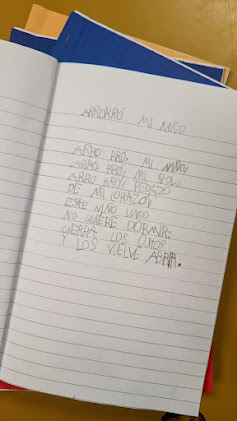 ARRORRÓ MI NIÑO
ARRO RRÓ, MI NIÑO,
ARRO RRÓ, MI SOL,
ARRO RRÓ, PEDAZO
DE MI CORAZÓN
ESTE NIÑO LINDO
NO QUIERE DORMIR:
CIERRA LOS OJITOS
Y LOS VUELVE ABRIR.